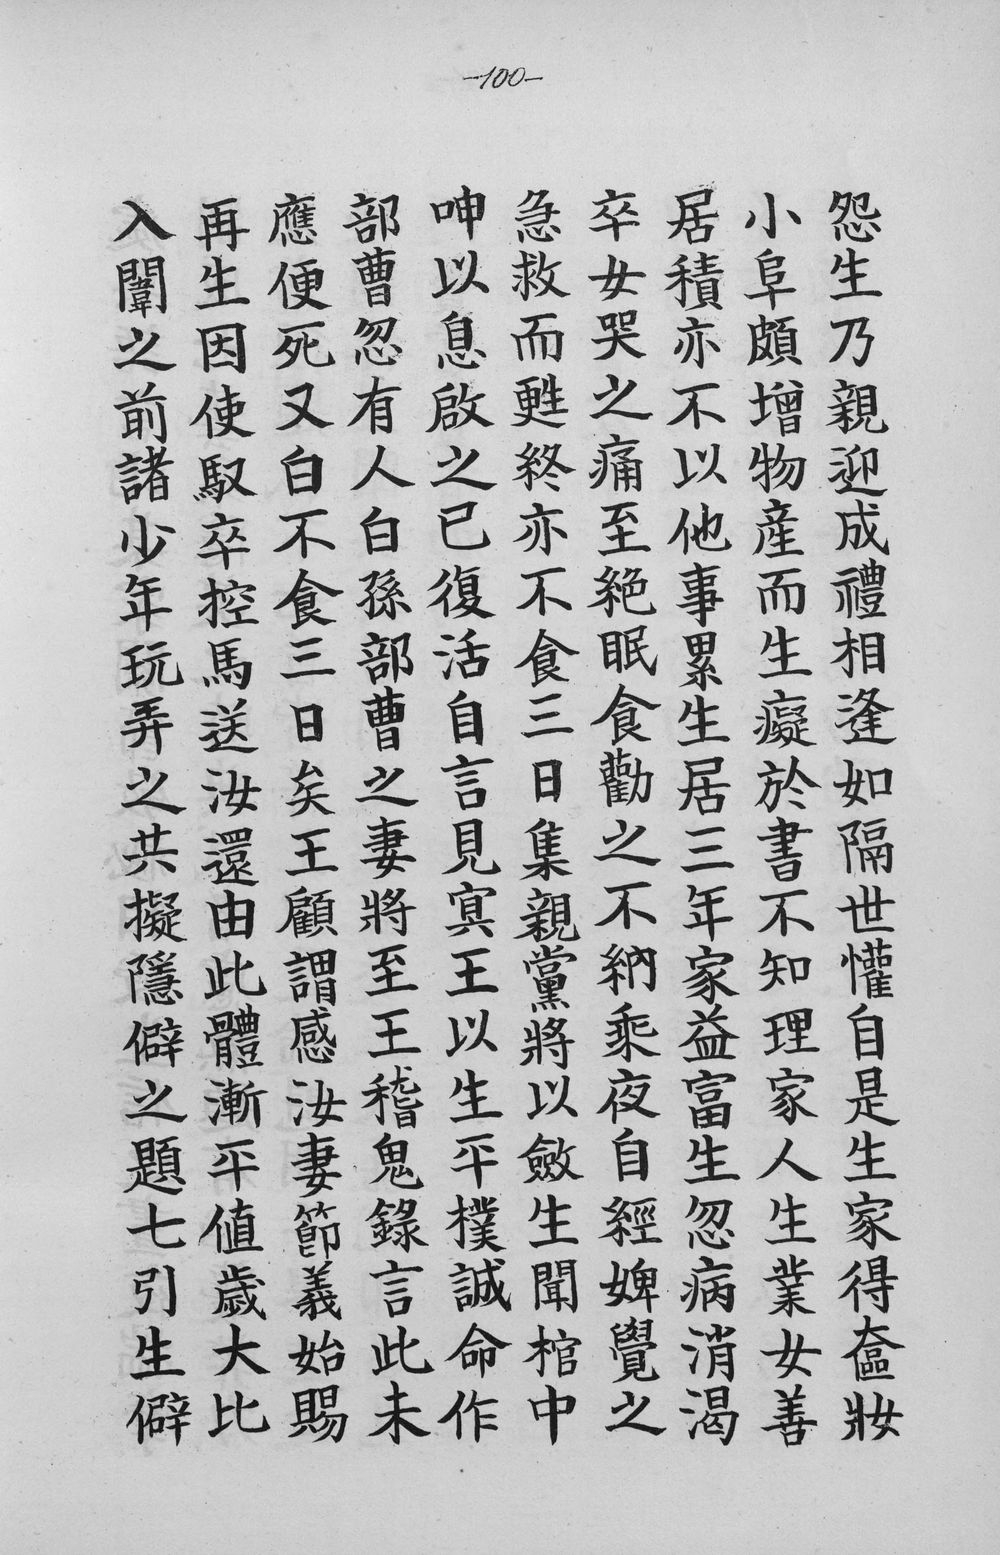 -100-
怨生乃親迎成禮相逢如隔世懽自是生家得奩妝
小阜頗增物産而生癡於書不知理家人生業女善
居積亦不以他事累生居三年家益富生忽病消渴
卒女哭之痛至絶眠食勸之不納乘夜自經婢覺之
急救而甦終亦不食三日集親黨將以斂生聞棺中
呻以息啟之已復活自言見冥王以生平樸誠命作
部曹忽有人白孫部曹之妻將至王稽鬼錄言此未
應便死又白不食三日矣王顧謂感汝妻節義始賜
再生因使馭卒控馬送汝還由此體漸平值歲大比
入闈之前諸少年玩弄之共擬隱僻之題七引生僻